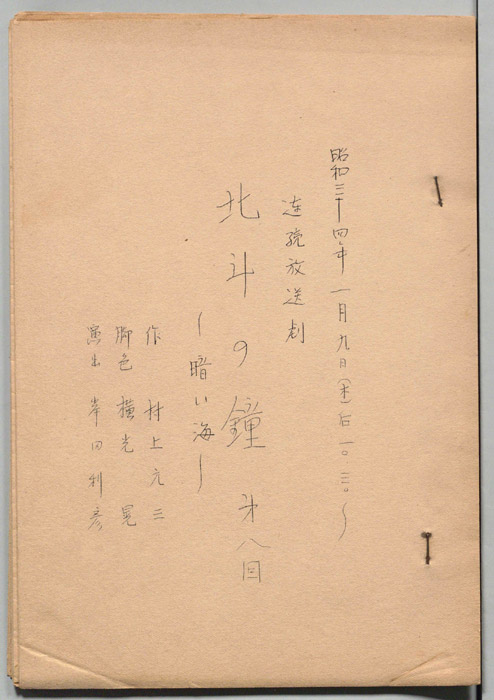 昭和三十四年一月九日(木)后一〇.三〇~
連続放送劇
北斗の鐘 才八回
~暗い海~
作 村上元三
脚色 横光晃
演出 岸田利彦